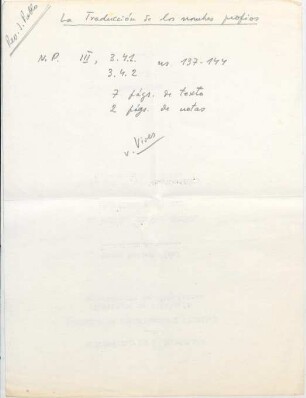 La Traducción de los nombres propios
N.P. III, 3.4.1. ns. 137-144
3.4.2
7 págs. de texto
2 págs. de notas
v. Vives